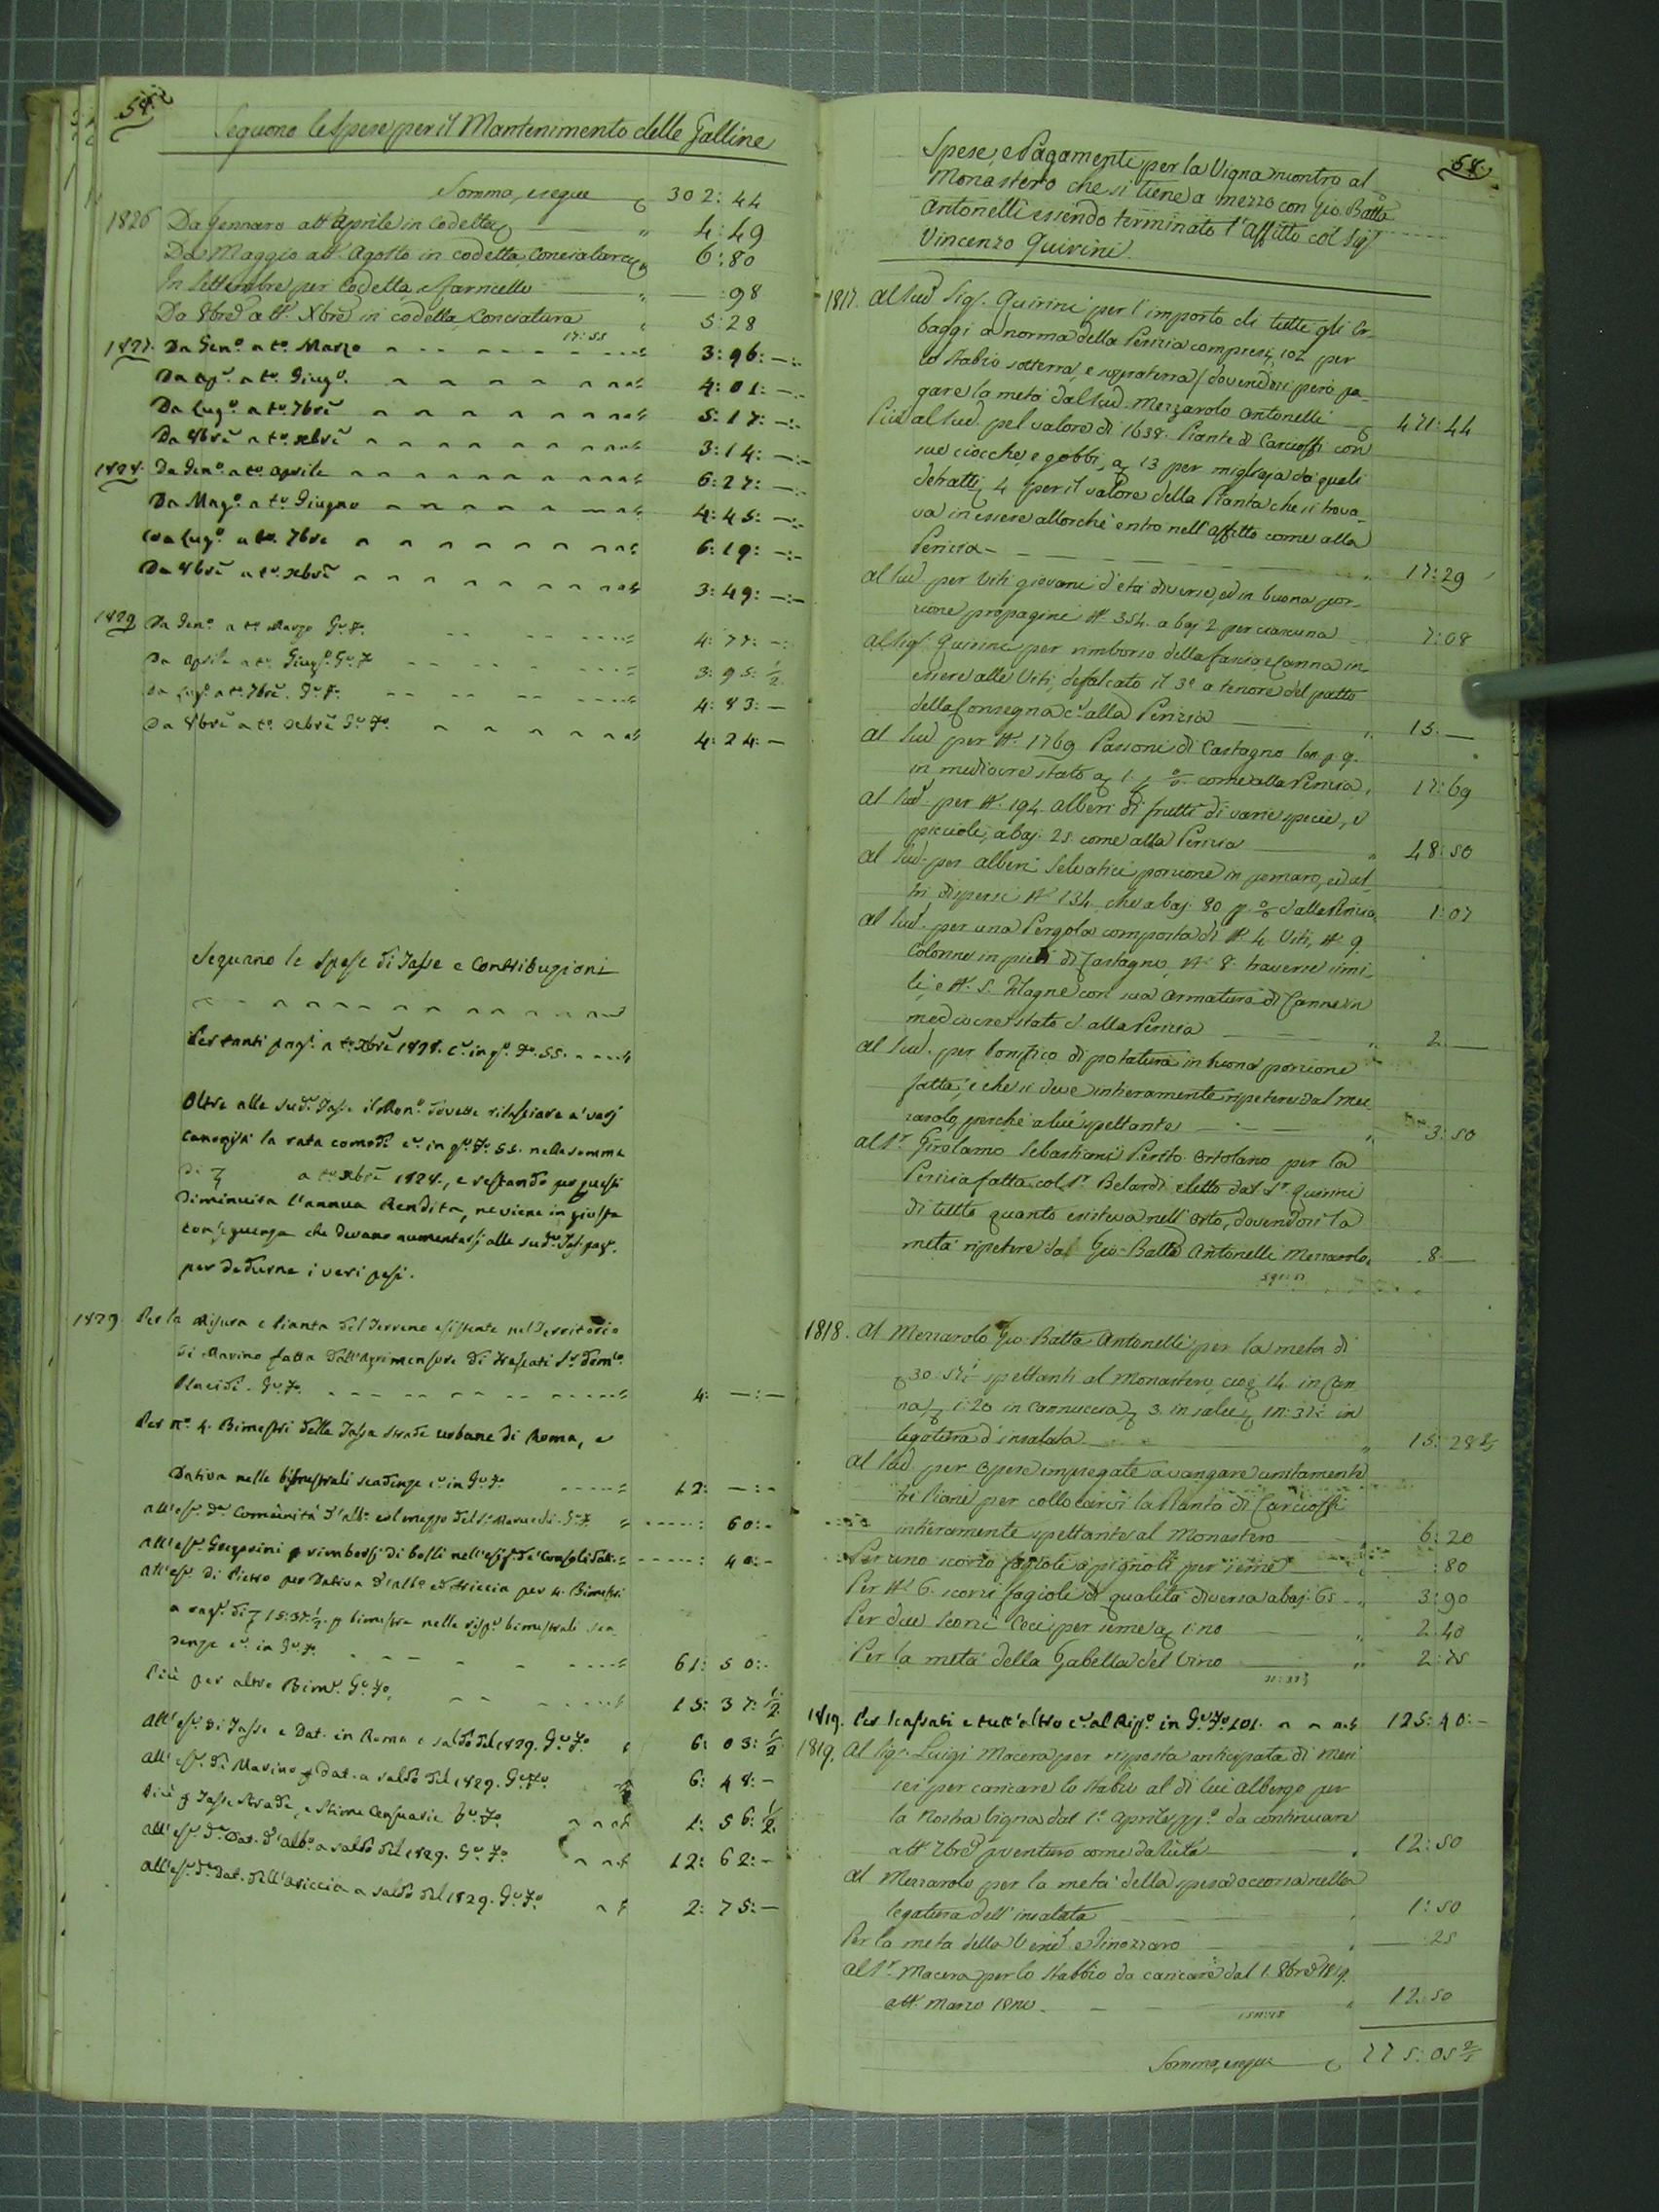 58.
Seguono le Spese per il Mantenimento delle Galline
Somma, e segue 302: 44
1826 Da Gennaro all' Aprile in Codetta 4: 49
Da Maggio all' Agosto in codetta, Conciatura 6: 80
In Settembre per Codetta, e farricello — :98
Da 8bre all' Xbre in codetta, Conciatura 5: 28
17: 55
1827. Da Gen.o a t.o Marzo 3: 96: —
Da Ap.e a t.o Giug.o 4: 01: —
Da Lug.o a t.o 7bre 5: 17: —
Da 8bre a t.o xbre 3: 14: —
1828. Da Gen.o a t.o Aprile 6: 27: —
Da Mag.o a t.o Giugno 4: 45: —
Da Lug.o a t.o 7bre 6: 19: —
Da 8bre a t.o xbre 3: 49: —
1829 Da Gen.o a t.o Marzo G.e F.o 4: 77: —
Da Aprile a t.o Giug.o G.e F.o 3: 95: 1/2
Da Lug.o a t.o 7bre. G.e F.o 4: 83: —
Da 8bre a t.o xbre G.e F.o 4: 24: —
Seguano le Spese di Tasse e Contribuzioni
Per tanti pag.i a t.o xbre 1828. c.e in q.o F.o 55.
Oltre alle sud.e Tasse il Mon.o dovette rilasciare a' varj
Canonisti la rata comodi c.e in q.o F.o 55. nella somma
di a t.o xbre 1828., e restando per questi
diminuita l'annua Rendita, ne viene in giusta
conseguenza che devano aumentarsi alle sud.e Tas. pag.
per dedurne i veri pesi.
1829 Per la Misura e Pianta del Terreno esistente nel Territorio
di Marino fatta dall'Agrimensore di Frascati S.r Dom.co
Placidi. G.e F.o 4: — : —
Per n.o 4. Bimestri della Tassa strade urbane di Roma, e
Dativa nelle bimestrali scadenze c.e in G.e F.o 12: — : —
All'es.e d.a Comunità d'Alb.o col mezzo del S.r G.e F. : 60: -
All'es.e Gregorini p rimborsi di bolli nell'esig. de' Consolidati : 40: -
All'es.e di Pietro per Dativa d'Albo ed Ariccia per 4. Bimestri
a rag.e di 15: 37 1/2. p bimestre nelle risp.e bimestrali sca-
denze c.e in G.e F.o 61: 50: -
Più per altro Bim.e G.e F.o 15: 37: 1/2
All'es.e di Tasse e Dat. in Roma a saldo del 1829. G.e F.o 6: 03: 1/2
All'es.e di Marino p dat. a saldo del 1829. G.e F.o 6: 48: —
Più p Tasse Strade, e Stime Censuarie G.e F.o 1: 56: 1/2
All'es.e d.a Dat. d'Alb.o a saldo del 1829. G.e F.o 12: 62: —
All'es.e d.a Dat. dell'Ariccia a saldo del 1829. G.e F.o 2: 75: —
58.
Spese, e Pagamenti per la Vigna incontro al
Monastero che si tiene a mezzo con Gio. Batta
Antonelli essendo terminato l'Affitto col Sig.r
Vincenzo Quirini.
1817. Al sud.o Sig.r Quirini per l'importo di tutti gli Er-
baggi a norma della Perizia compresi 102 per
lo stabio sotterra, e sopraterra / dovendosi però pa-
gare la metà dal sud. Mezzarolo Antonelli 471: 44
Più al sud. pel valore di 1638. Piante di Carcioffi con
sue ciocche, e gobbi, a 13 per migliaja dai quali
detratti 4 per il valore della Pianta che si trova-
va in essere allorchè entrò nell'Affitto come alla
Perizia 17: 29
Al sud. per Viti giovani d'età diverse, ed in buona por-
zione propagini N. 354. a baj. 2 per ciascuna 7: 08
Al Sig.r Quirini per rimborso della fascia e Canna in
essere alle Viti, defalcato il 3.o a tenore del patto
della Consegna c.e alla Perizia 15. —
Al sud. per N. 1769 Passoni di Castagno
in mediocre stato a 1. p % come alla Perizia 17: 69
Al sud. per N. 194. alberi di frutti di varie specie, e
piccioli, a baj. 25. come alla Perizia 48: 50
Al sud. per alberi selvatici porzione in pomaro, ed al-
tri dispersi N. 134. che a baj. 80 p. % c.e alla Perizia 1: 07
Al sud. per una Pergola composta di N. 4 Viti, N. 9
Colonne in piedi di Castagno, N. 8. traverse simi-
li, e N. 5. Filagne con sua armatura di Canne in
mediocre stato c.e alla Perizia 2 —
Al sud. per bonifico di potatura in buona porzione
fatta, e che si deve intieramente ripetere dal mez-
zarolo, perchè a lui spettante 3: 50
Al S.r Girolamo Sebastiani Perito Ortolano per la
Perizia fatta col S.r Belardi eletto dal S.r Quirini
di tutto quanto esisteva nell'Orto, dovendosi la
metà ripetere da Gio. Batta Antonelli Mezzarolo 8. —
591: 57
1818. Al Mezzarolo Gio. Batta Antonelli per la metà di
30: 57 spettanti al Monastero, cioè 14. in Can-
na, 1: 20 in Cannuccia, 3. in salci, in
legatura d'insalata 15: 28 1/2
Al sud. per Opere impiegate a vangare unitamente
tre Piane per collocarci la Pianta di Carcioffi
intieramente spettante al Monastero 6: 20
Per uno scorzo fagioli a pignoli per seme :80
Per N. 6. scorzi fagioli di qualità diversa a baj. 65 3: 90
Per due Scorzi Ceci per seme a 1: 20 2: 40
Per la metà della Gabella del Vino 2: 75
1819. Per Incassati e tutt'altro c.e al Rip.o in G.e F.o 101. 125: 40: —
1819. Al Sig.r Luigi Macera per risposta anticipata di mesi
sei per caricare lo stabio al di lui albergo per
la nostra Vigna dal 1.o Aprile da continuare
all' 7bre p venturo come da lista 12: 50
Al Mezzarolo per la metà della spesa occorsa nella
legatura dell'insalata 1: 50
Per la metà della e Tinozzaro — : 25
Al S.r Macera per lo Stabbio da caricare dal 1. 8bre 1819.
all' Marzo 1820 12: 50
Somma, e segue 775: 05 2/5